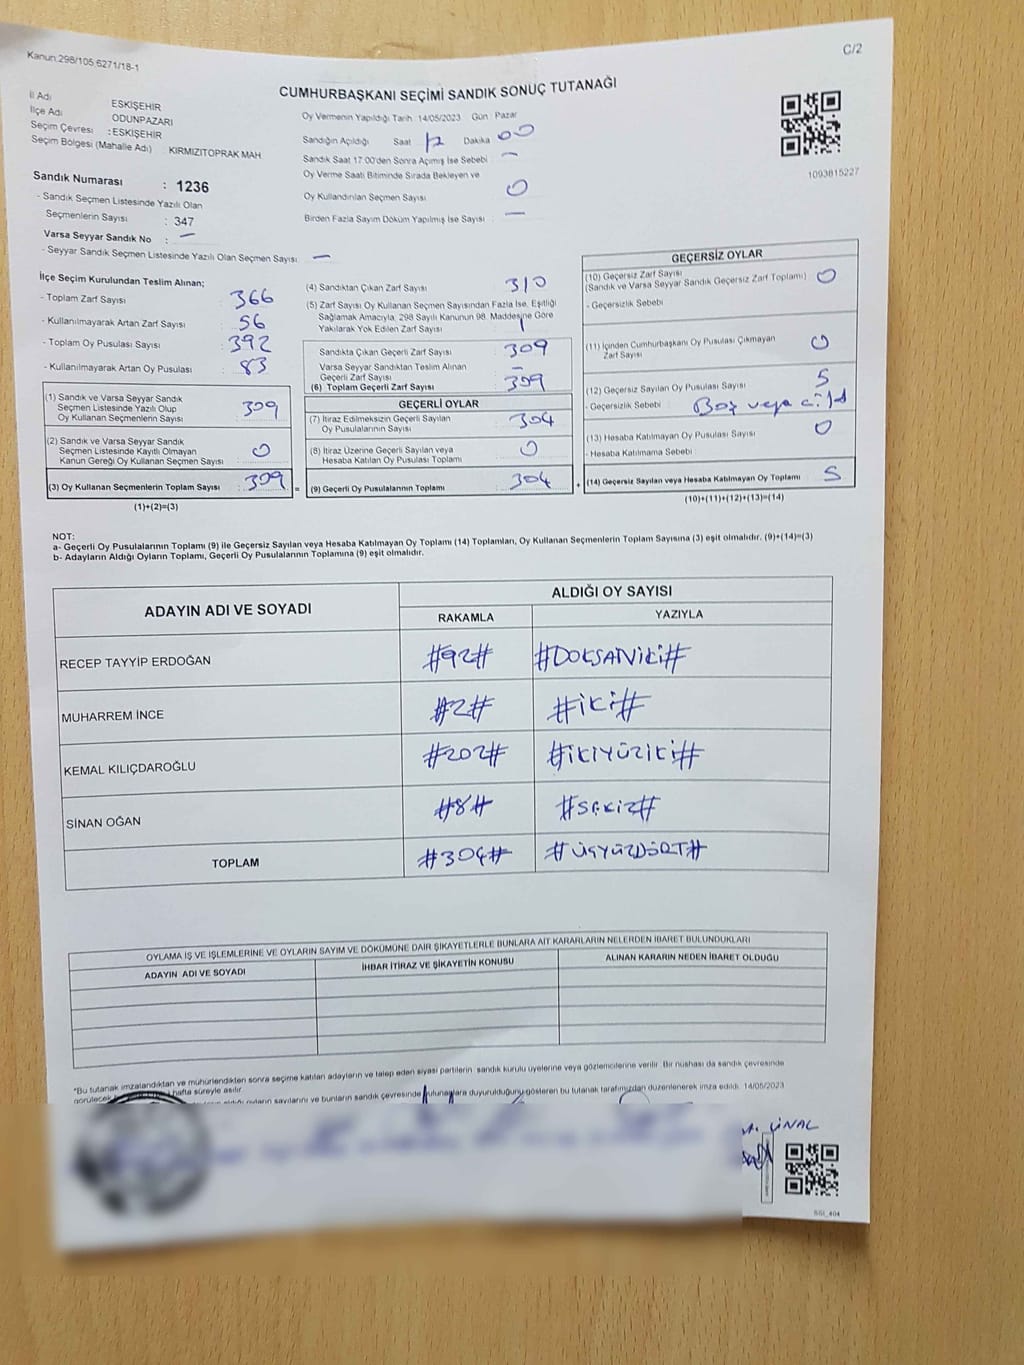 Kanun:298/105.6271/18-1
C/2
CUMHURBAŞKANI SEÇİMİ SANDIK SONUÇ TUTANAĞI
İl Adı ESKİŞEHİR
İlçe Adı ODUNPAZARI
Seçim Çevresi : ESKİŞEHİR
Seçim Bölgesi (Mahalle Adı) : KIRMIZITOPRAK MAH
Sandık Numarası : 1236
- Sandık Seçmen Listesinde Yazılı Olan
Seçmenlerin Sayısı : 347
Varsa Seyyar Sandık No : —
- Seyyar Sandık Seçmen Listesinde Yazılı Olan Seçmen Sayısı : —
Oy Vermenin Yapıldığı Tarih :14/05/2023 Gün : Pazar
Sandığın Açıldığı Saat 17 Dakika 00
Sandık Saat 17:00'den Sonra Açımış İse Sebebi : —
Oy Verme Saati Bitiminde Sırada Bekleyen ve
Oy Kullandırılan Seçmen Sayısı : 0
Birden Fazla Sayım Döküm Yapılmış İse Sayısı : —
1093815227
İlçe Seçim Kurulundan Teslim Alınan;
- Toplam Zarf Sayısı 366
- Kullanılmayarak Artan Zarf Sayısı 56
- Toplam Oy Pusulası Sayısı 392
- Kullanılmayarak Artan Oy Pusulası 83
(1) Sandık ve Varsa Seyyar Sandık
Seçmen Listesinde Yazılı Olup
Oy Kullanan Seçmenlerin Sayısı 309
(2) Sandık ve Varsa Seyyar Sandık
Seçmen Listesinde Kayıtlı Olmayan
Kanun Gereği Oy Kullanan Seçmen Sayısı 0
(3) Oy Kullanan Seçmenlerin Toplam Sayısı 309
(1)+(2)=(3)
(4) Sandıktan Çıkan Zarf Sayısı 310
(5) Zarf Sayısı Oy Kullanan Seçmen Sayısından Fazla İse, Eşitliği
Sağlamak Amacıyla, 298 Sayılı Kanunun 98. Maddesine Göre
Yakılarak Yok Edilen Zarf Sayısı 1
Sandıkta Çıkan Geçerli Zarf Sayısı 309
Varsa Seyyar Sandıktan Teslim Alınan
Geçerli Zarf Sayısı —
(6) Toplam Geçerli Zarf Sayısı 309
GEÇERLİ OYLAR
(7) İtiraz Edilmeksizin Geçerli Sayılan
Oy Pusulalarının Sayısı 304
(8) İtiraz Üzerine Geçerli Sayılan veya
Hesaba Katılan Oy Pusulası Toplamı 0
= (9) Geçerli Oy Pusulalarının Toplamı 304
GEÇERSİZ OYLAR
(10) Geçersiz Zarf Sayısı
(Sandık ve Varsa Seyyar Sandık Geçersiz Zarf Toplamı) 0
- Geçersizlik Sebebi
(11) İçinden Cumhurbaşkanı Oy Pusulası Çıkmayan
Zarf Sayısı 0
(12) Geçersiz Sayılan Oy Pusulası Sayısı 5
- Geçersizlik Sebebi Boş veya
(13) Hesaba Katılmayan Oy Pusulası Sayısı 0
- Hesaba Katılmama Sebebi
+ (14) Geçersiz Sayılan veya Hesaba Katılmayan Oy Toplamı 5
(10)+(11)+(12)+(13)=(14)
NOT:
a- Geçerli Oy Pusulalarının Toplamı (9) ile Geçersiz Sayılan veya Hesaba Katılmayan Oy Toplamı (14) Toplamları, Oy Kullanan Seçmenlerin Toplam Sayısına (3) eşit olmalıdır. (9)+(14)=(3)
b- Adayların Aldığı Oyların Toplamı, Geçerli Oy Pusulalarının Toplamına (9) eşit olmalıdır.
ADAYIN ADI VE SOYADI
ALDIĞI OY SAYISI
RAKAMLA YAZIYLA
RECEP TAYYİP ERDOĞAN #92# #DOKSANİKİ#
MUHARREM İNCE #2# #İKİ#
KEMAL KILIÇDAROĞLU #202# #İKİYÜZİKİ#
SİNAN OĞAN #8# #SEKİZ#
TOPLAM #304# #ÜÇYÜZDÖRT#
OYLAMA İŞ VE İŞLEMLERİNE VE OYLARIN SAYIM VE DÖKÜMÜNE DAİR ŞİKAYETLERLE BUNLARA AİT KARARLARIN NELERDEN İBARET BULUNDUKLARI
ADAYIN ADI VE SOYADI İHBAR İTİRAZ VE ŞİKAYETİN KONUSU ALINAN KARARIN NEDEN İBARET OLDUĞU
*Bu tutanak imzalandıktan ve mühürlendikten sonra seçime katılan adayların ve talep eden siyasi partilerin sandık kurulu üyelerine veya gözlemcilerine verilir. Bir nüshası da sandık çevresinde
görülecek hafta süreyle asılır.
aldığı oyların sayılarını ve bunların sandık çevresinde duyurulduğunu gösteren bu tutanak tarafımızdan düzenlenerek imza edildi. 14/05/2023
ÜNAL